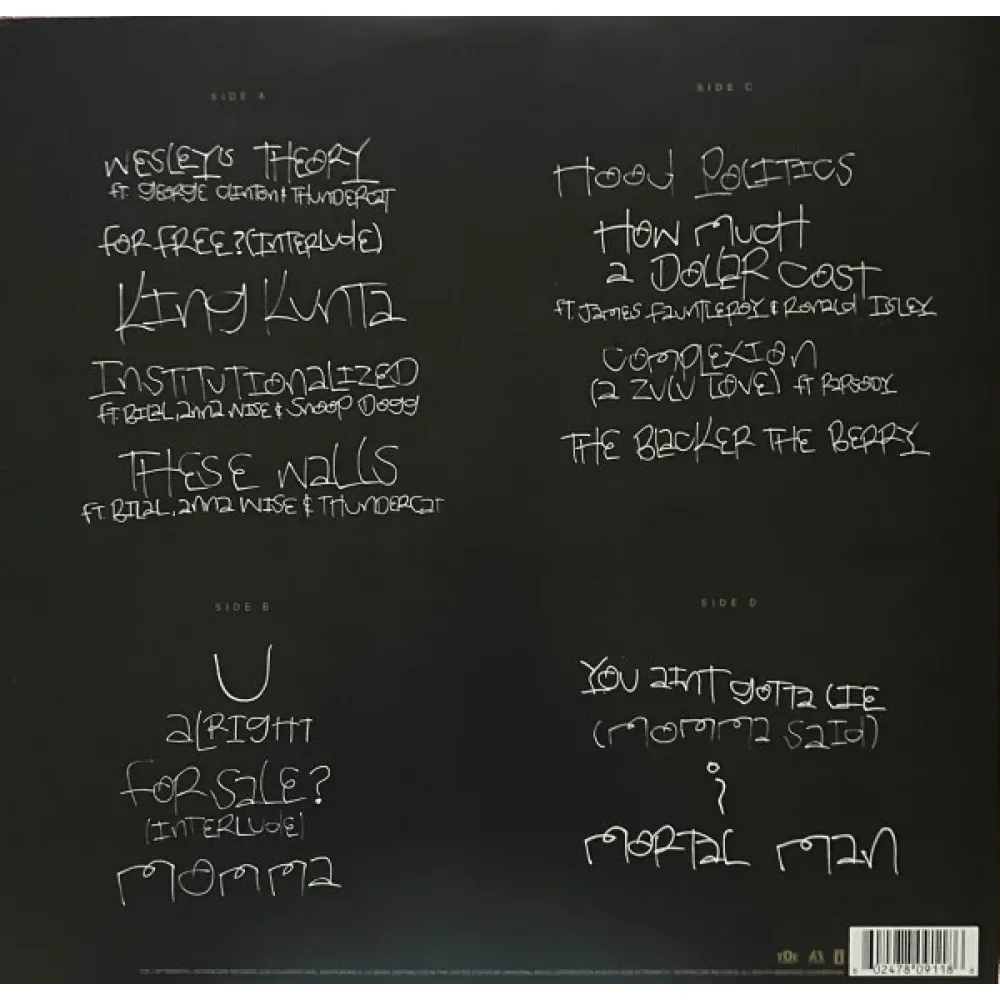 SIDE A
WESLEY'S THEORY
ft. GEORGE CLINTON & THUNDERCAT
FOR FREE? (INTERLUDE)
KING KUNTA
INSTITUTIONALIZED
ft. BILAL, ANNA WISE & SNOOP DOGG
THESE WALLS
ft. BILAL, ANNA WISE & THUNDERCAT
SIDE B
U
ALRIGHT
FOR SALE?
(INTERLUDE)
MOMMA
SIDE C
HOOD POLITICS
HOW MUCH
A DOLLAR COST
ft. JAMES FAUNTLEROY & RONALD ISLEY
COMPLEXION
(A ZULU LOVE) ft RAPSODY
THE BLACKER THE BERRY
SIDE D
YOU AINT GOTTA LIE
(MOMMA SAID)
i
MORTAL MAN
TDE
6 02478 09118 8